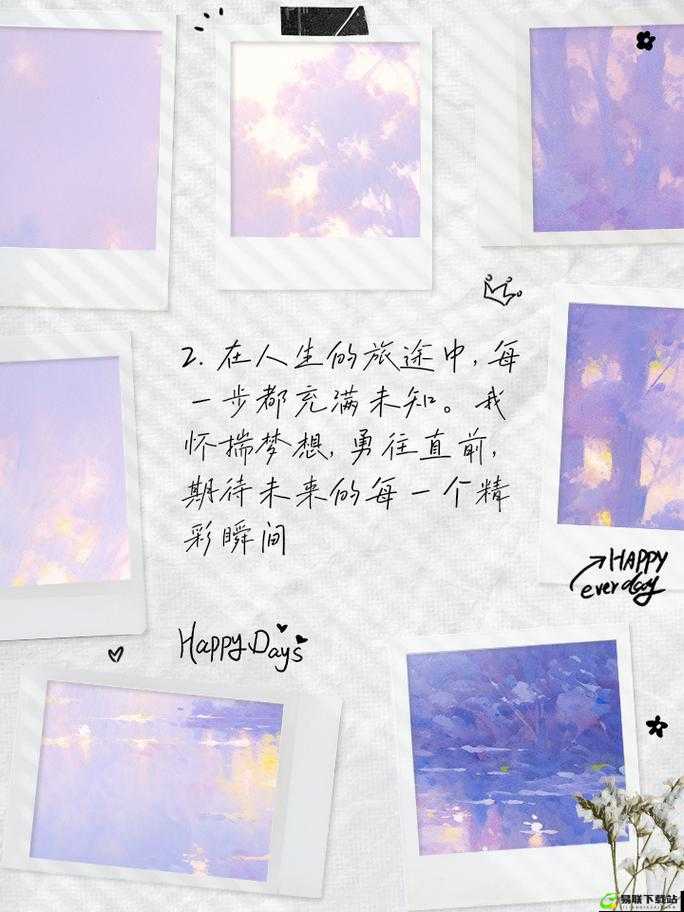 2. 在人生的旅途中，每
一步都充满未知。我
怀揣梦想，勇往直前，
期待未来的每一个精
彩瞬间
HAPPY
everday
Happy Days
易联下载站